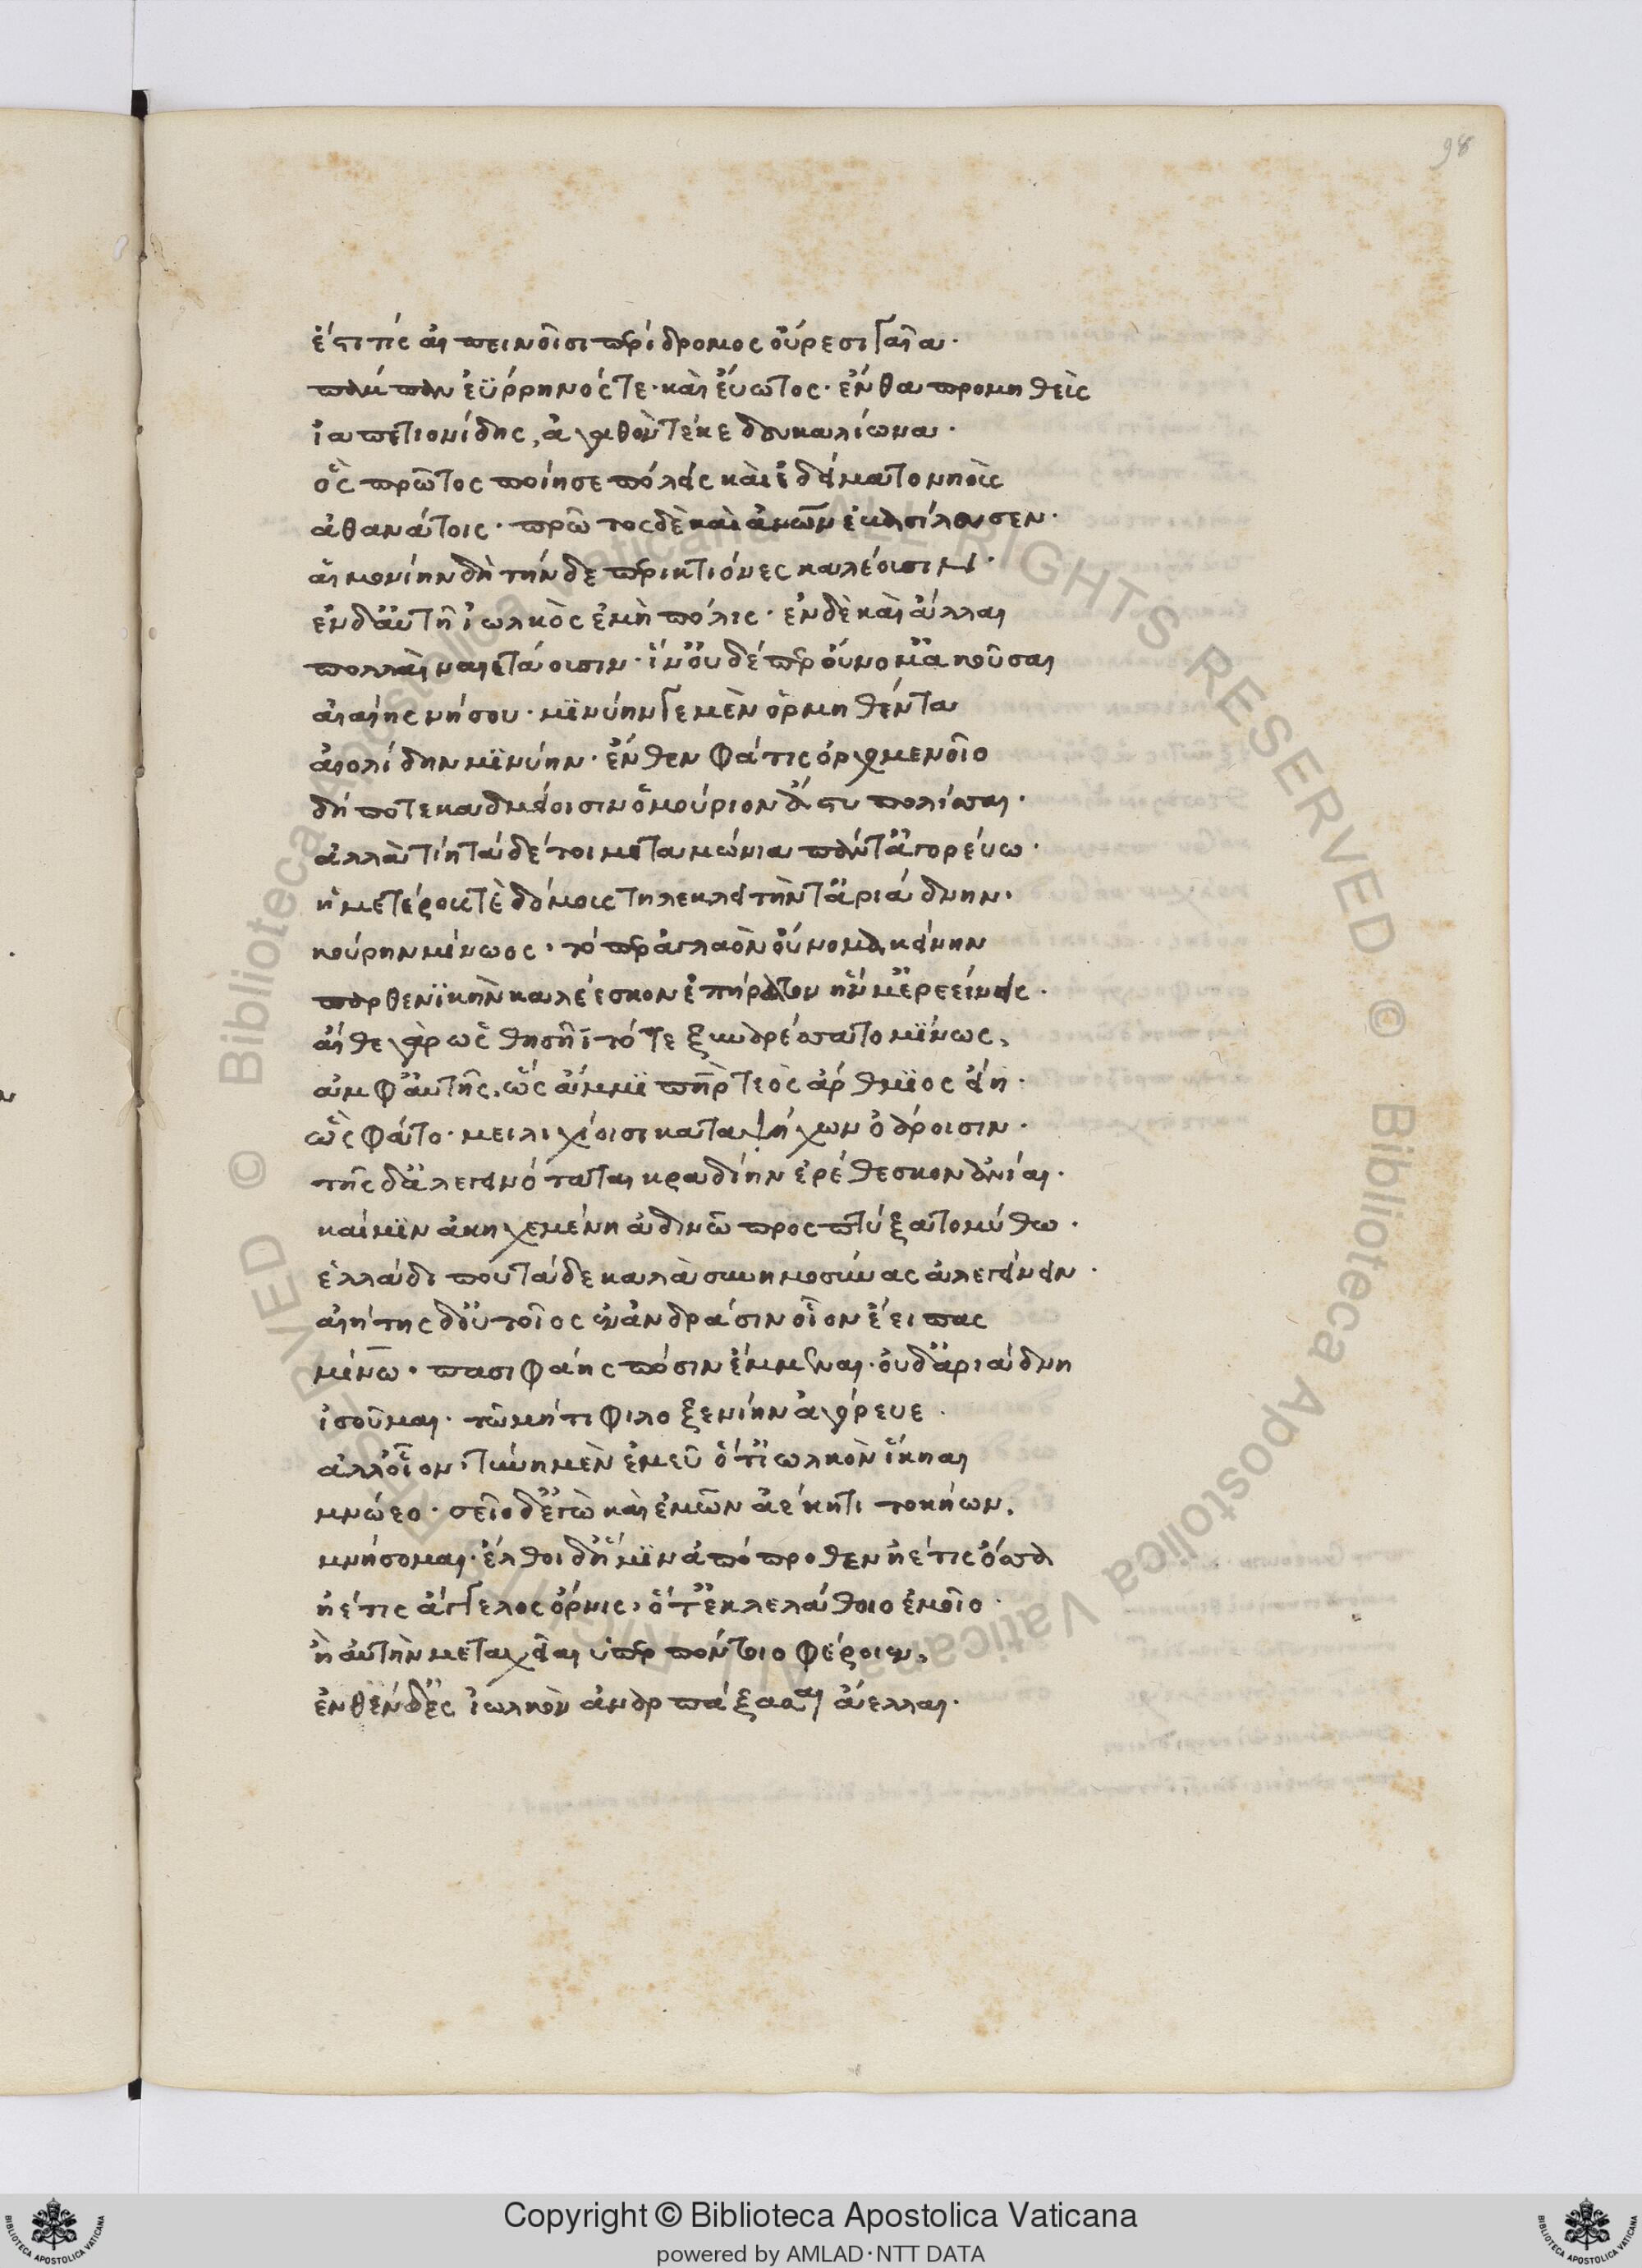 98
ἔστι τίς αἰπεινοῖσι περίδρομος οὔρεσι γαῖα·
πάμπαν ἐΰρρηνός τε· καὶ εὔβοτος· ἔνθα προμηθεὺς
ἰαπετιονίδης, ἀγαθὸν τέκε δευκαλίωνα·
ὃς πρῶτος ποίησε πόλεις καὶ ἐδείματο νηοὺς
ἀθανάτοις· πρῶτος δὲ καὶ ἀνῶν ἐμβασίλευσεν·
αἱμονίην δὴ τήνδε περικτιόνες καλέουσιν·
ἐν δ' αὐτῇ ἰωλκὸς ἐμὴ πόλις· ἐν δὲ καὶ ἄλλαι
πολλαὶ ναιετάουσιν· ἵν' οὐδέ περ οὔνομ' ἀκοῦσαι
αἰαίης νήσου· μινύην γε μὲν ὁρμηθέντα
αἰολίδην μινύην· ἔνθεν φάτις ὀρχομενοῖο
δή ποτε καδμείοισιν ὁμούριον ἄστυ πολίσσαι·
ἀλλὰ τίη τάδε τοι μεταμώνια πάντ' ἀγορεύω·
ἡμετέρους τὲ δόμους τηλεκλειτὴν τ' ἀριάδνην·
κούρην μίνωος· τό περ ἀγλαὸν οὔνομα κείνην
παρθενικὴν καλέεσκον ἐπήρατον ἥν μ' ἐρεείνεις·
αἴθε γὰρ ὡς θησῆϊ τότε ξυναρέσσατο μίνως,
ἀμφ' αὐτῆς, ὣς ἄμμι πατὴρ τεὸς ἄρθμιος εἴη·
ὣς φάτο· μειλιχίοισι καταψήχων ὀάροισιν·
τῆς δ' ἀλεγεινόταται κραδίην ἐρέθεσκον ἀνίαι·
καί μιν ἀκηχεμένη ἀδινῷ προσπτύξατο μύθῳ·
ἑλλάδι που τάδε καλὰ συνημοσύνας ἀλεγείνειν·
αἰήτης δ' οὐ τοῖος ἐν ἀνδράσιν οἷον ἔειπας
μίνω· πασιφάης πόσιν ἔμμεναι· οὐδ' ἀριάδνῃ
ἰσοῦμαι· τῷ μήτι φιλοξενίην ἀγόρευε·
ἀλλ' οἷον· τύνη μὲν ἐμεῦ ὅτ' ἰωλκὸν ἵκηαι
μνώεο· σεῖο δ' ἐγὼ καὶ ἐμῶν ἀέκητι τοκήων.
μνήσομαι· ἔλθοι δ' ἡμῖν ἀπόπροθεν ἠέ τις ὄσσα
ἠέ τις ἄγγελος ὄρνις, ὅτ' ἐκλελάθοιο ἐμοῖο·
ἢ αὐτὴν με ταχεῖαι ὑπὲρ πόντοιο φέροιεν,
ἐνθένδ' εἰς ἰωλκὸν ἀναρπάξασαι ἄελλαι·
Copyright © Biblioteca Apostolica Vaticana
powered by AMLAD·NTT DATA